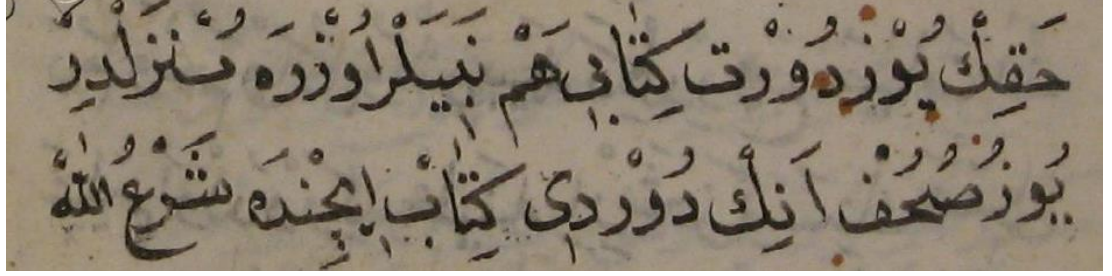 حَقِڭْ يُوْزْ دُورْت كِتَابِي هَمْ نَبِيَلَرْ اُوزْرَه مُنْزَلْدِرْ
يُوزْ صُحُفْ اَنِڭْ دُوْرْدِي كِتَابْ اِيچِنْدَه شَرْعُ اللّٰهْ